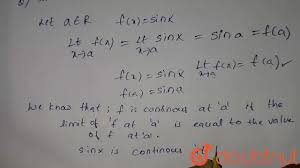 Let a∈R f(x)=sinx
Lt x→a f(x) = Lt x→a sinx = sin a = f(a)
f(x) = sinx Lt x→a f(x) = f(a) ✓
f(a) = sina
We know that ; f is continous at 'a' if the
limit of 'f at 'a' is equal to the value
of f at 'a'.
sinx is continous
doubtnut